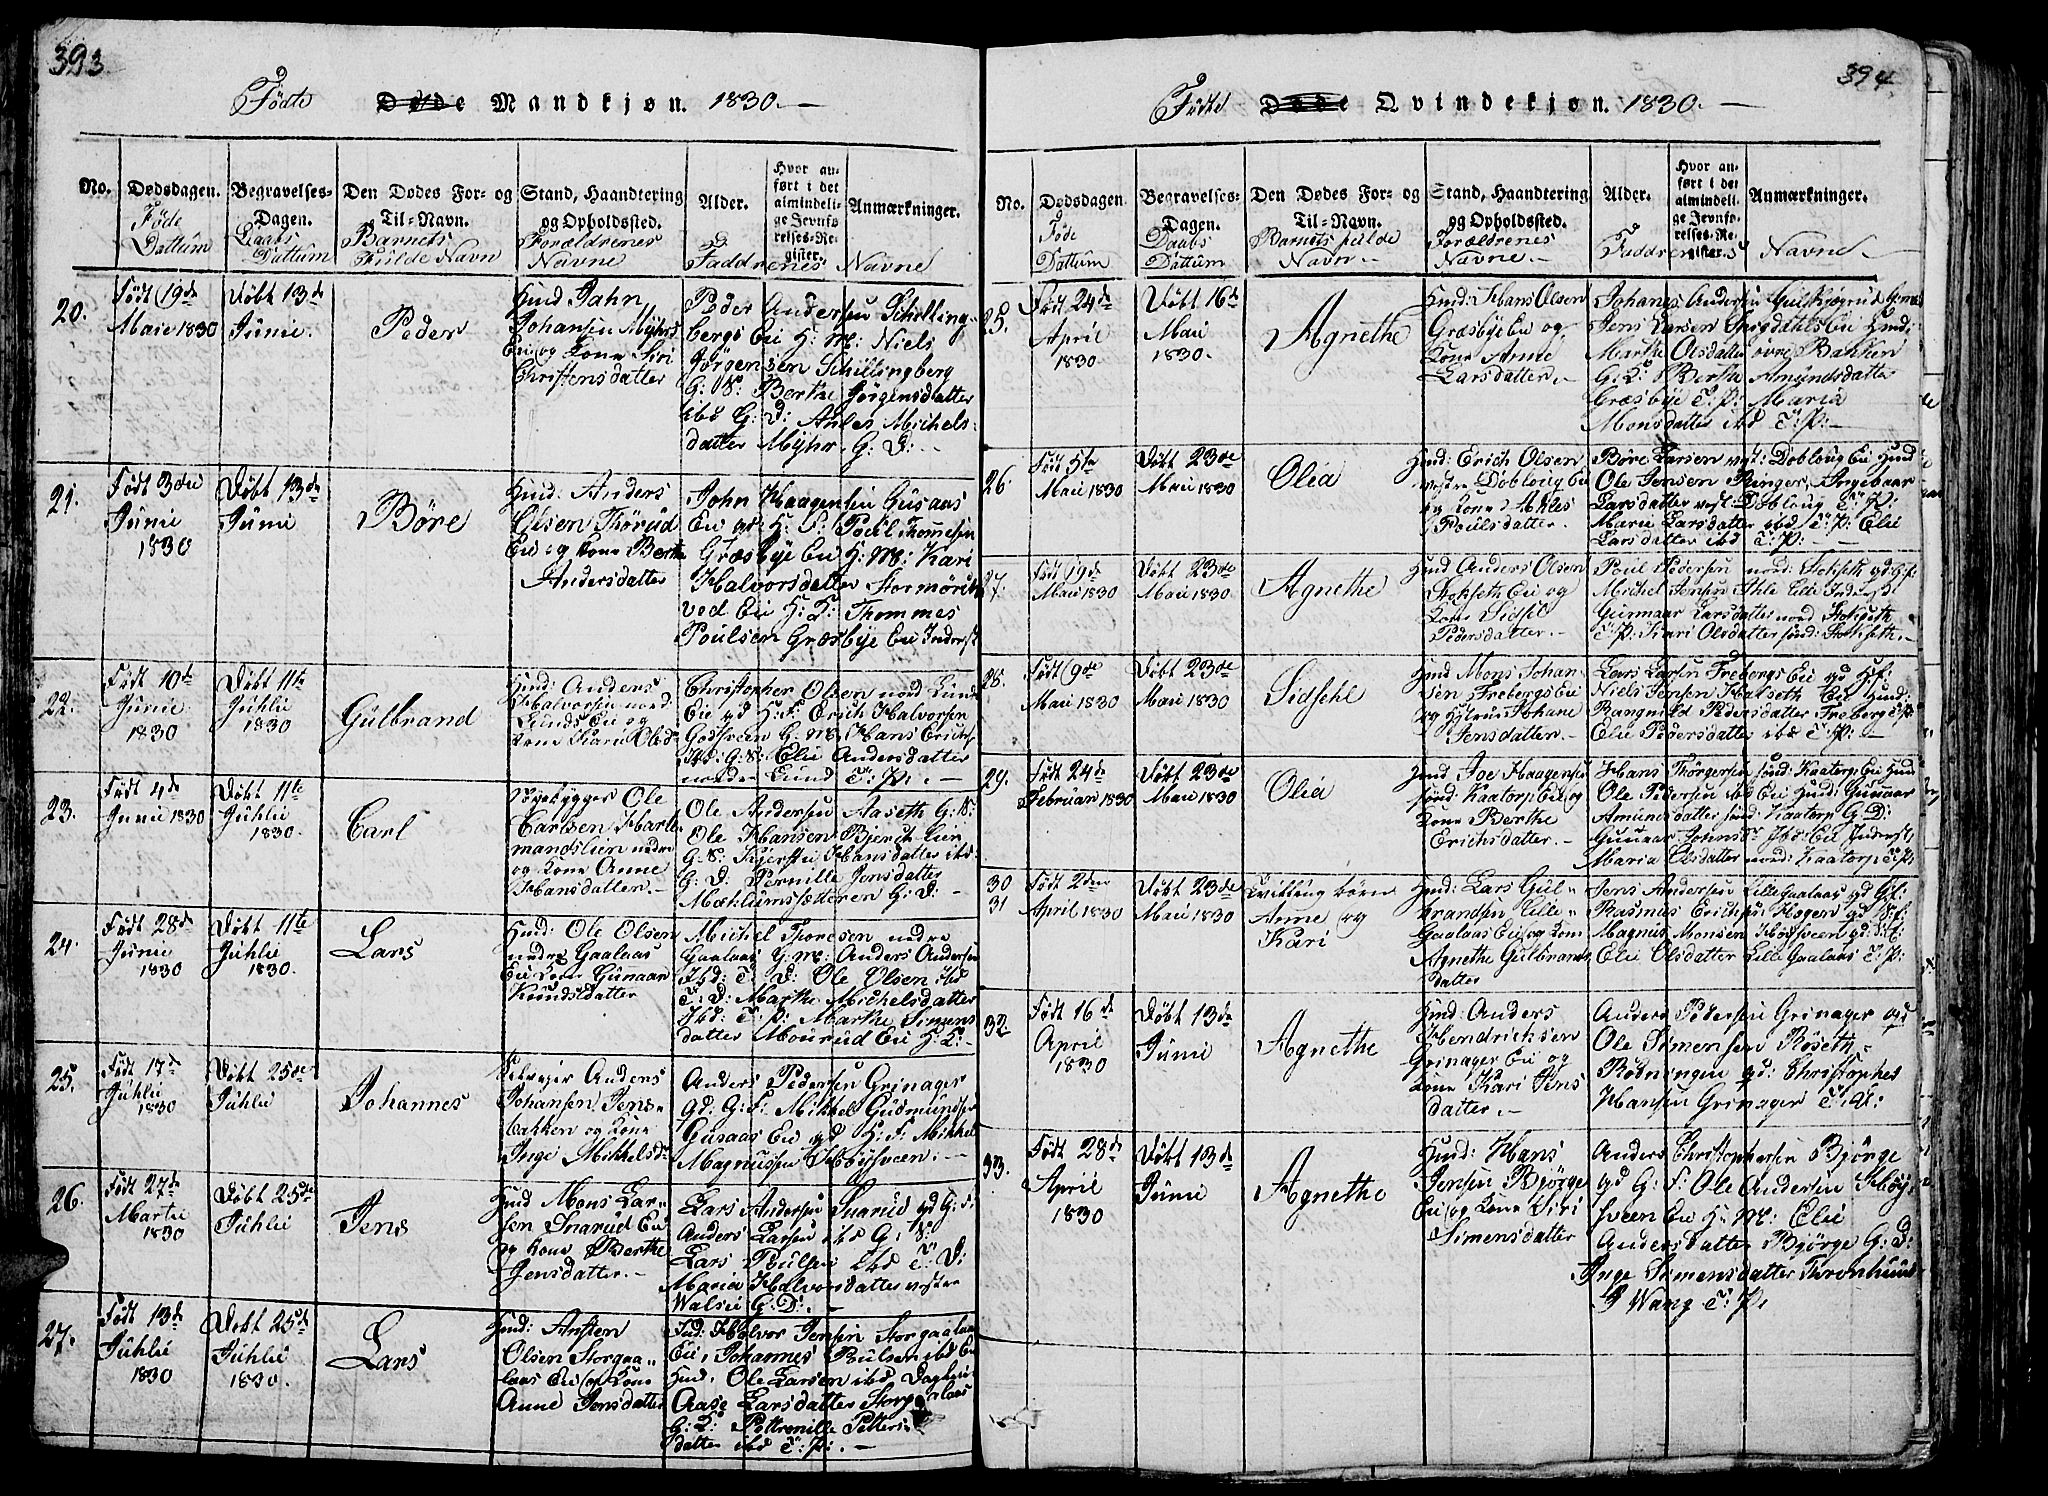 393
Fødte Døde Mandkjøn. 1830.
No.
Dødsdagen.
Føde
Dattum
Begravelses-
Dagen.
Daabs
Dattum
Den Dødes For- og
Til-Navn.
Barnets
Fulde Navn
Stand, Haandtering
og Opholdssted.
Forældrenes
Navne
Alder.
Hvor an-
ført i det
almindeli-
ge Jevnfø-
relses-Re-
gister.
Anmærkninger.
Faddrenes Navne
20.
Født 19de
Maie 1830
Døbt 13de
Junie.
Peder
Huusd Jahn
Johansen Myhrs
Eie og Kone Siri
Christensdatter
Peder Andersen Schilling-
bergs Eie H: M: Niels
Jørgensen Schillingberg
G: S: Berthe Jørgensdatter
ibd G: D: Michels-
datter Myhr G: D: -
21.
Født 3die
Junie
1830
Døbt 13de
Junie
Børe
Husd: Anders
Olsen Thorud
Eie og Kone Berthe
Andersdatter
John Haagensen Gusaas
Eie gd H: F: Poul Thomesen
Græsbye Eie H: M: Kari
Halvorsdatter
ved Eie H: K: Thommes
Poulsen Græsbye Eie Inderst
22.
Født 10de
Junie
1830
Døbt 11te
Juhlie
1830
Gulbrand
Husd: Anders
Halvorsen nord
Lunds Eie og
Kone Kari Olsd-
Christopher Olsen nord Lunds
Eie gd H: F: Erich Halvorsen
Godsveen G: M: Hans Erichs
Ibd: G: S: Elie Andersdatter
nordre Lund T: P: -
23.
Født 4de
Junie 1830
Døbt 11te
Juhlie
1830.
Carl
Ole
Carlsen
mandslien nedre
og Kone Anne
Hansdatter. -
Ole Andersen Aaseth G: S:
Ole Hansen Bjerch
G: S: Kjersti Hansdatter ibd:
G: D: Pernille Jensdatter
G: D: -
24.
Født 28de
Junie
1830
Døbt 11te
Juhlie
1830.
Lars
Husd: Ole Olsen
nedre Gaalaas
Eie Kone Gunaar
Knudsdatter
Michel Thoresen nedre
Gaalaas G: M: Anders Andersen
Ibd: T: D: Ole Olsen ibd
T: D: Marthe Michelsdatter
Ibd: T: P: Marthe Simens
datter Mourud Eie H: K: -
25.
Født 17de
Juhlie
1830
Døbt 25de
Juhlie
Johannes
Anders
Johansen Jens-
bakken og Kone
Inge Mikkelsd-
Anders Pedersen Grinager
gd: G: F: Mikkel Gudmundsen
Gusaas Eie gd H: F: Mikkel
Magnussen Høysveen. -
26.
Født 27de
Martie
1830
Døbt 25de
Juhlie
Jens
Husd Mons Lar-
sen Snarud Eie
og Kone Berthe
Jensdatter. -
Lars Andersen Snarud gd G: F:
Anders Larsen ibd G: S:
Lars Poulsen ibd T: D:
Maria Halvorsdatter vestre
G: D: -
27.
Født 13de
Juhlie
1830
Døbt 25de
Juhlie
1830.
Lars
Husd: Arsten
Olsen Storgaa-
laas Eie og Kone
Anne Jensdatter
Ind: Halvor Jensen Storgaalaas
Eie, Johannes Poulsen ibd Eie
Husd, Ole Larsen ibd
Aase Larsdatter Storgaalaas
G: K: Petternille Petters-
datter ibd T: P: -
394
Fødte Døde Qvindekjøn. 1830. -
No.
Dødsdagen
Føde
Dattum
Begravelses-
Dagen.
Daabs
Dattum
Den Dødes For- og
Til-Navn.
Barnets fulde
Navn. -
Stand, Haandtering
og Opholdssted.
Forældrenes
Navne. -
Alder.
Hvor an-
ført i det
almindeli-
ge Jevnfø-
relses-Re-
gister.
Anmærkninger.
Faddrenes Navne -
25.
Født 24de
April
1830
Døbt 16de
Mai
1830.
Agnethe
Husd: Hans Olsen
Græsbye Eie og
Kone Anne
Larsdatter. -
Johanes Andersen
Jens Larsen Eie Husd:
Marthe Olsdatter øvre Bakken
G: K: Berthe Amundsdatter
Græsbye T: P: Maria
Monsdatter ibd T: P: -
26.
Født 5te
Mai 1830
Døbt 23de
Mai 1830
Olia
Husd: Erich Olsen
vestre Dobloug Eie
og Kone Ahles
Poulsdatter.
Børe Larsen vest: Dobloug Eie Husd
Ole Jensen Ringer, Ingebaar
Larsdatter vest Dobloug T: P:
Marie Larsdatter ibd T: P: Elie
Larsdatter ibd T: P: -
27.
Født 19de
Mai 1830
Døbt 23de
Mai 1830
Agnethe
Husd Anders Olsen
Stokseth Eie og
Kone Sidsel
Pedersdatter. -
Poul Pedersen nord: Stokseth gd: G: F:
Michel Jensen
Gunnaar Larsdatter nord Stokseth
T: P: Kari Olsdatter sønd: Stokseth. -
28.
Født 9de
Mai 1830
Døbt 23de
Mai 1830
Sidsehl
Husd Mons Johan
sen Frebergs Eie
og Hustrue Johane
Jensdatter. -
Lars Larsen Frebergs Eie gd H: F:
Niels Jensen Halseth Eie Husd:
Rangnild Pedersdatter Freberg T: P:
Elie Pedersdatter ibd T: P: -
29.
Født 24de
Februar 1830
Døbt 23de
Mai 1830
Olia
Husd Joe Haagensen
sønd: Kaatorp Eie og
Kone Berthe
Erichsdatter. -
Hans Thørgersen sønd: Kaatorp Eie Husd
Ole Pedersen ibd Eie Husd: Gunaar
Amundsdatter sønd: Kaatorp G: D:
Gunnar Jensens Ibd: Eie Inderst
Maria Olsdatter nord: Kaatorp T: P:
30
31
Født 2den
April 1830
Døbt 23de
Mai 1830
Tvilling børn
Anne og
Kari
Husd: Lars Gul-
brandsen Lille-
Gaalaas Eie og Kone
Agnethe Gulbrands
datter
Jens Andersen Lille Gaalaas gd G: F:
Rasmus Erichsen Hogen gd H: F:
Magnus Monsen Høysveen gd: H: F:
Elie Olsdatter Lille Gaalaas T: P:
32
Født 16de
April
1830
Døbt 13de
Junie
Agnethe
Husd: Anders
Hendrichsen
Grinager Eie og
Kone Kari Jens
datter. -
Anders Pedersen Grinager gd
Ole Simensen Røseth -
Røbningen gd: Christopher
Hansen Grinager T: D:
33.
Født 28de
April
1830
Døbt 13de
Junie
Agnethe
Husd: Hans
Jensen Bjørge
Eie og Kone Siri
Simensdatter
Anders Christophersen Bjørge
gd G: F: Ole Andersen Høy-
sveen Eie H: M: Elie
Andersdatter Bjørge G: D:
Inge Simensdatter
Wang T: P: